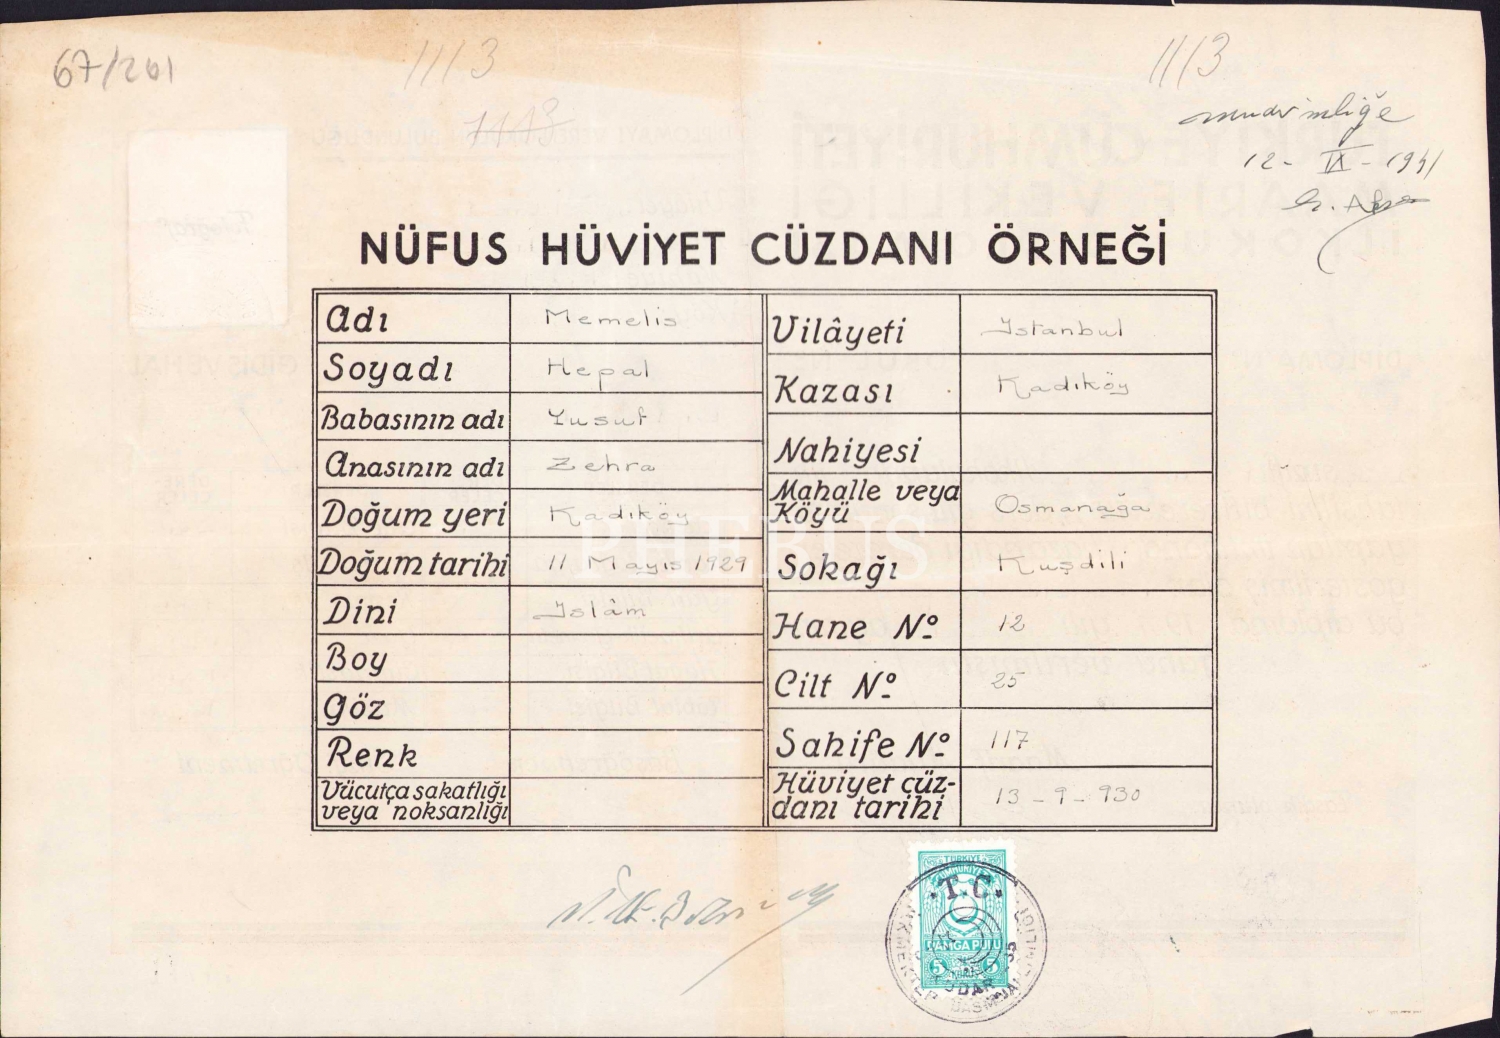 67/201
1113
1113
1113
12 - IX - 1941
NÜFUS HÜVİYET CÜZDANI ÖRNEĞİ
Adı Memelis
Soyadı Hepal
Babasının adı Yusuf
Anasının adı Zehra
Doğum yeri Kadıköy
Doğum tarihi 11 Mayıs 1929
Dini İslâm
Boy
Göz
Renk
Vücutça sakatlığı
veya noksanlığı
Vilâyeti İstanbul
Kazası Kadıköy
Nahiyesi
Mahalle veya
Köyü Osmanağa
Sokağı Kuşdili
Hane Nº 12
Cilt Nº 25
Sahife Nº 117
Hüviyet cüz-
danı tarihi 13 - 9 - 930
PHEBUS
TÜRKİYE
CUMHURİYETİ
T.C.
DAMGA PULU
5 5